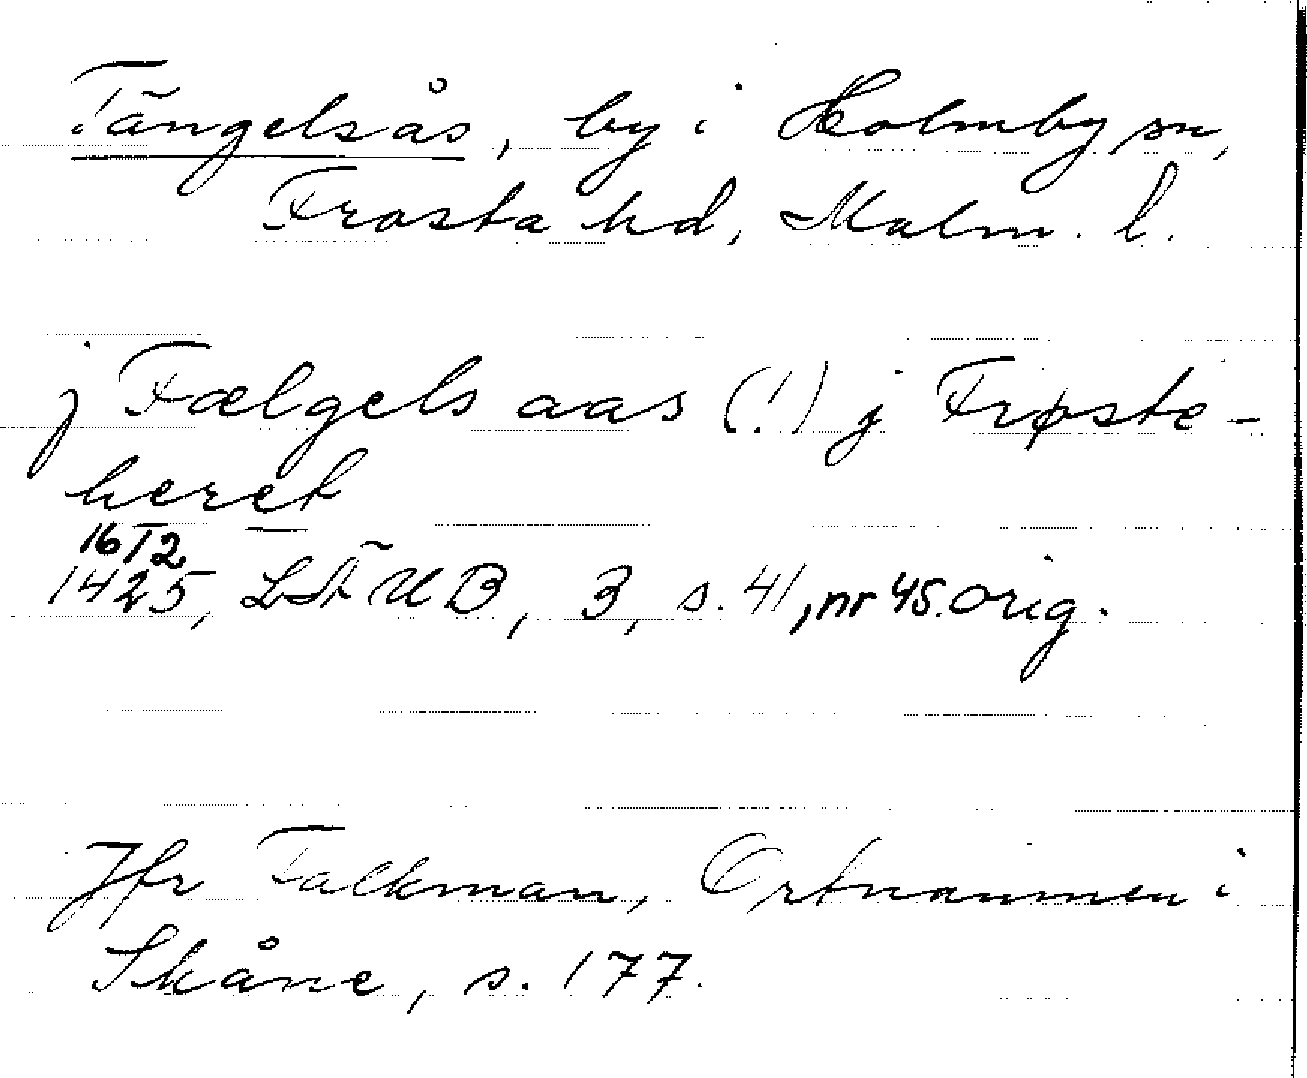 Tängelsås, by i Holmby sn,
Frosta hd, Malm. l.
j Fælgels aas (!) j Frøste-
heret
16/12
1425, LÄUB, 3, s. 41, nr 45. Orig.
Jfr Falkman, Ortnamnen i
Skåne, s. 177.